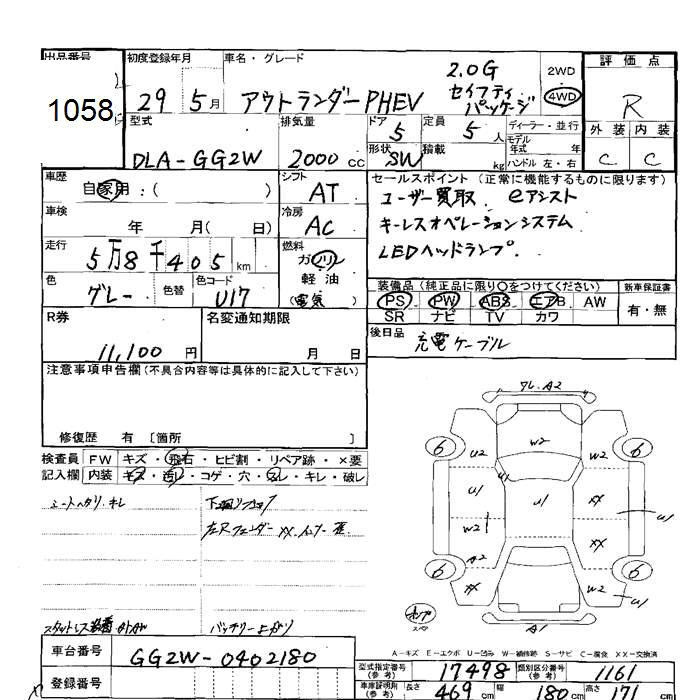 出品番号
1058
初度登録年月
29 5月
車名・グレード
アウトランダーPHEV
2.0G
セイフティ
パッケージ
2WD
4WD
評価点
R
外装 内装
C C
型式
DLA-GG2W
排気量
2000 cc
ドア
5
定員
5 人
形状
SW
積載
kg
ディーラー・並行
モデル
年式 年
ハンドル 左・右
車歴
自家用:( )
シフト
AT
車検
年 月( 日)
冷房
AC
走行
5万8千405 km
燃料
ガソリン
軽油
(電気 )
色
グレー
色替
色コード
U17
セールスポイント (正常に機能するものに限ります)
ユーザー買取 eアシスト
キーレスオペレーションシステム
LEDヘッドランプ
装備品 (純正品に限り○をつけてください)
PS PW ABS エアB. AW
SR ナビ TV カワ
新車保証書
有・無
後日品
充電ケーブル
R券
11,100 円
名変通知期限
月 日
注意事項申告欄 (不具合内容等は具体的に記入して下さい)
修復歴 有 〔箇所 〕
検査員 FW キズ・飛石・ヒビ割・リペア跡・×要
記入欄 内装 キズ・汚レ・コゲ・穴・スレ・キレ・破レ
シートヘタリ、キレ
バッテリー上がり
車台番号
GG2W-0402180
登録番号
フレ.A2
6 6
U2 W2 W2
U1 U1 XX U1
W2 XX
A2
6 6
XX W2 U1
A1
A-キズ E-エクボ U-凹み W-補修跡 S-サビ C-腐食 XX-交換済
型式指定番号
(参考)
17498
類別区分番号
(参考)
1161
車庫証明用
(参考)
長さ
469 cm
幅
180 cm
高さ
171 cm